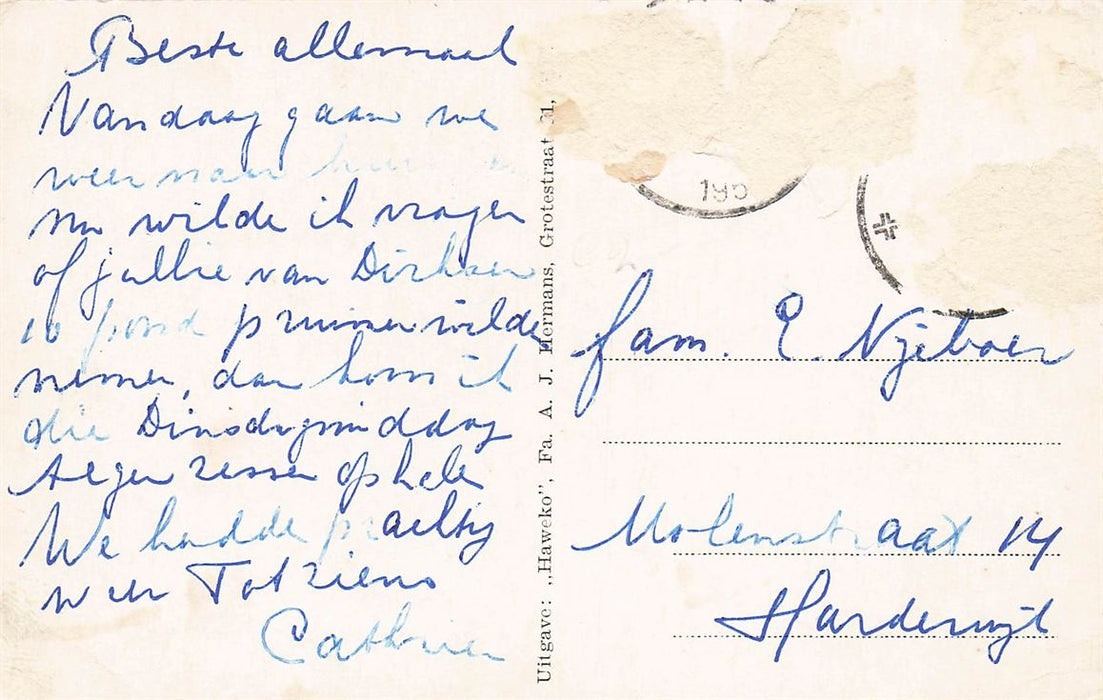 Beste allemaal
Vandaag gaan we
weer naar
nu wilde ik vragen
of jullie van Dirksen
10 pond pruimen wilde
nemen, dan kom ik
die Dinsdagmiddag
tegen zessen ophalen
We hadde prachtig
weer Tot ziens
Cathrien
Uitgave: „Haweko”, Fa. A. J. Hermans, Grotestraat 31,
195
fam. E. Nijeboer
Molenstraat 14
Harderwijk